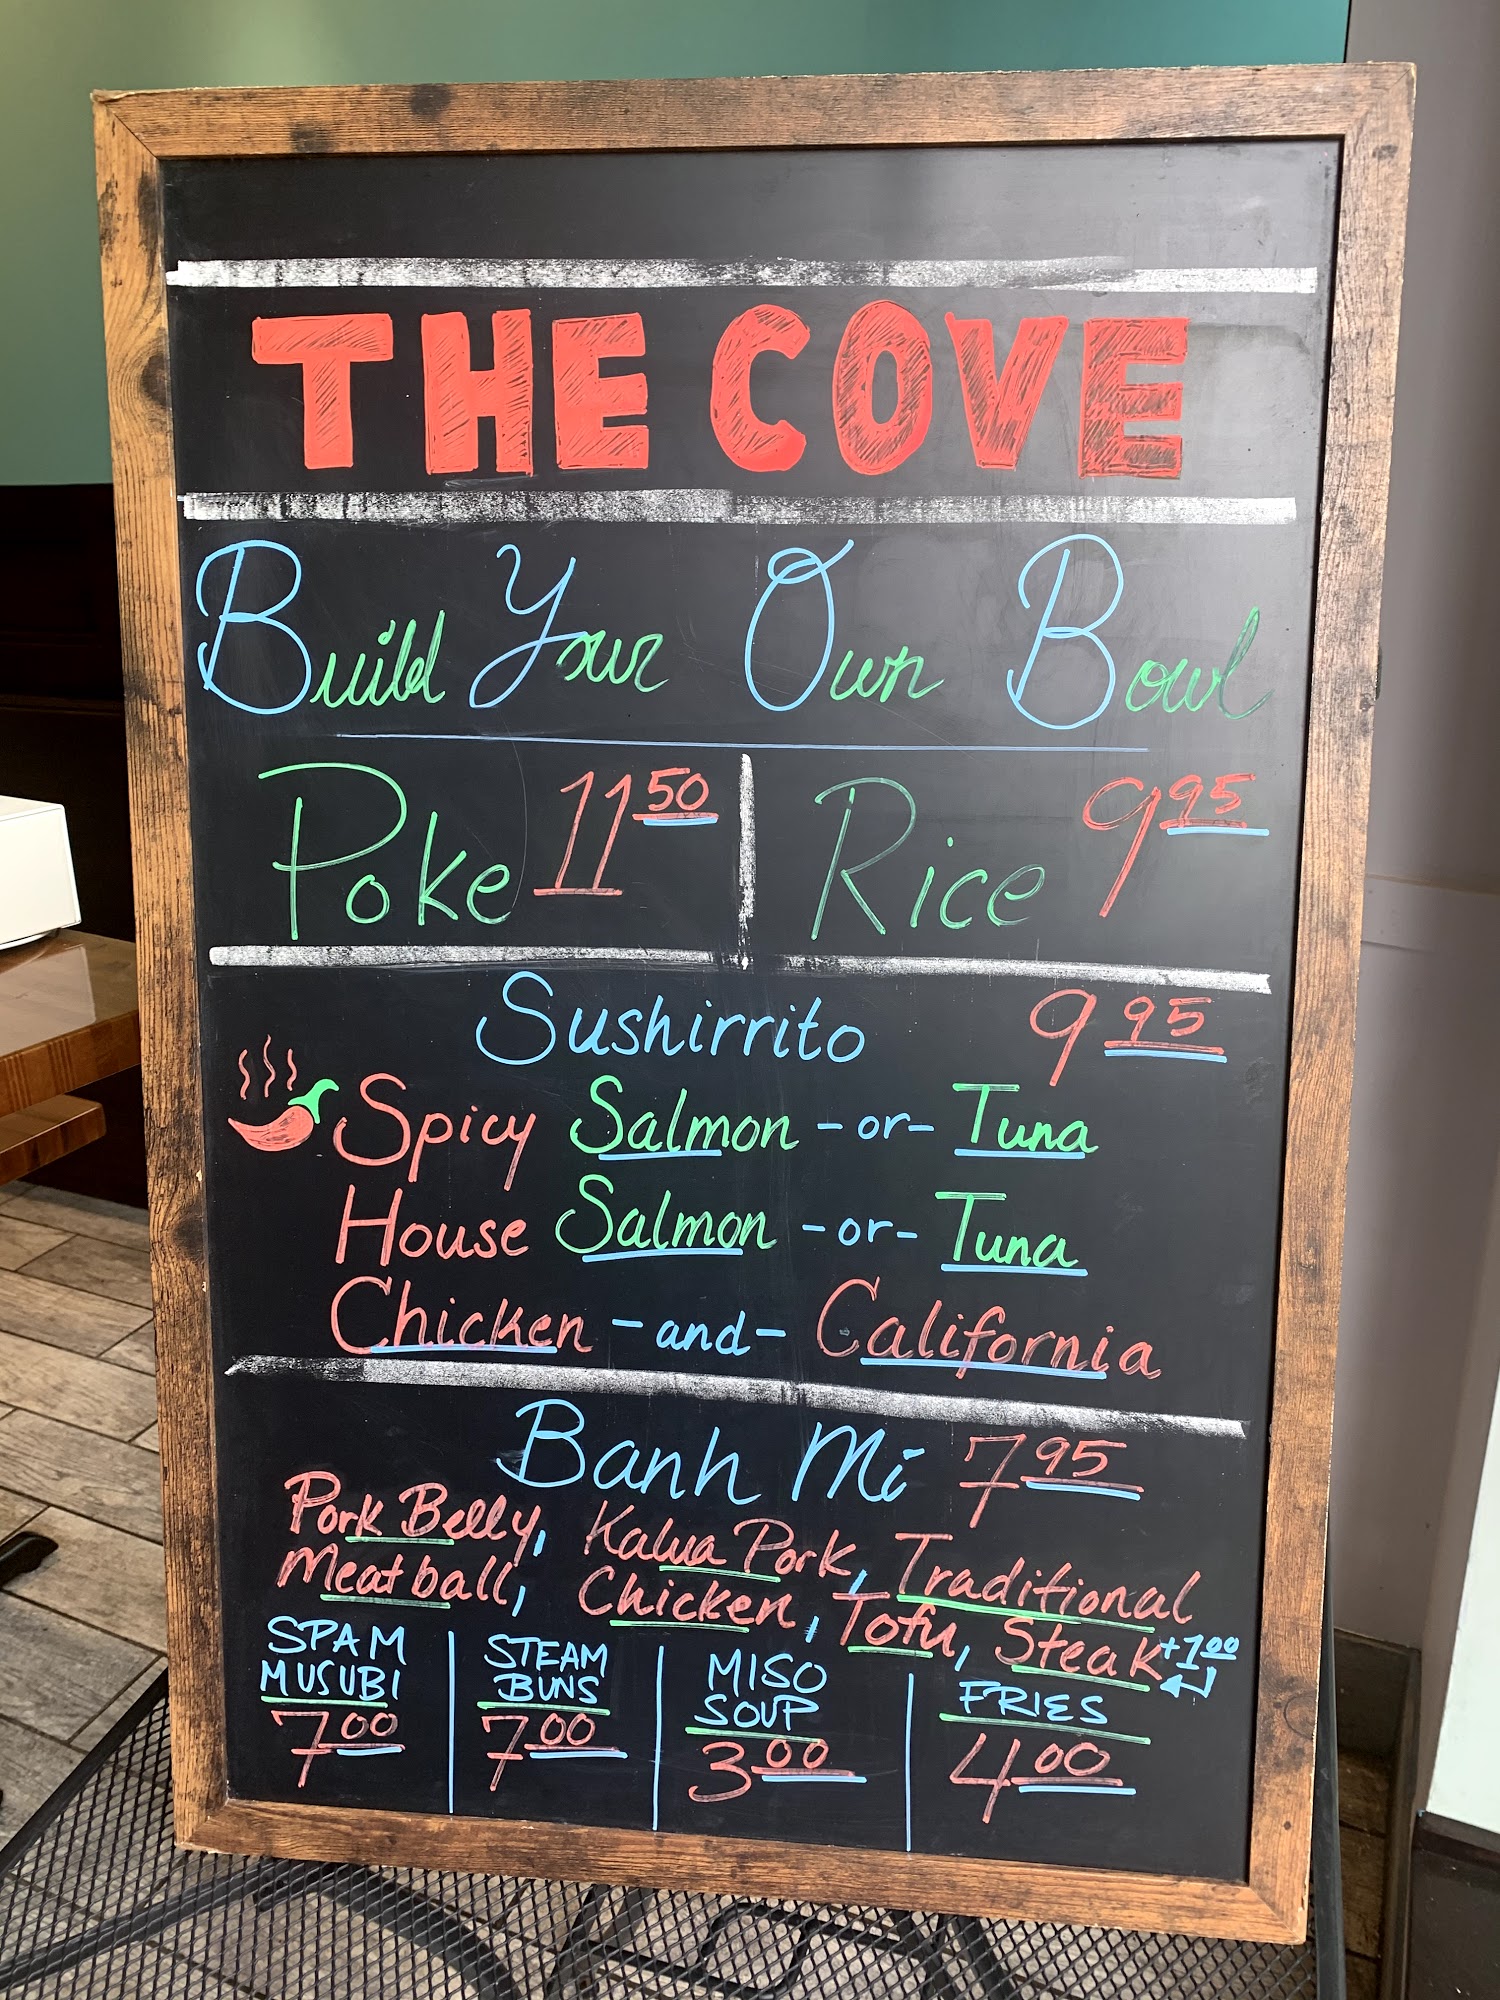 THE COVE
Build Your Own Bowl
Poke 11.50 Rice 9.95
Sushirrito 9.95
Spicy Salmon -or- Tuna
House Salmon -or- Tuna
Chicken -and- California
Banh Mi 7.95
Pork Belly, Kalua Pork, Traditional
Meatball, Chicken, Tofu, Steak +1.00
SPAM MUSUBI 7.00
STEAM BUNS 7.00
MISO SOUP 3.00
FRIES 4.00